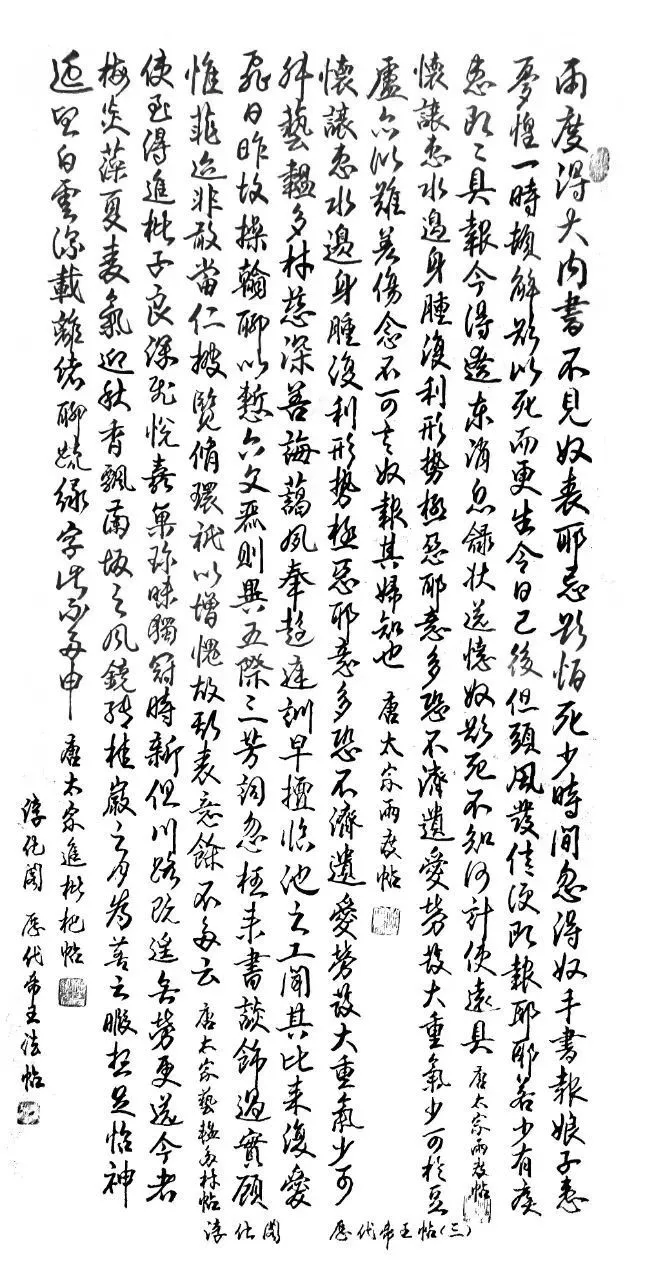 兩度得大內書不見奴表耶忌欲恒死少時間忽得奴手書報娘子患
憂惶一時頓解欲似死而更生今日已後但頭風發信便即報耶耶若少有疾
患即一一具報今得遼東消息錄狀送憶奴欲死不知何計使還具 唐太宗兩度帖
懷讓患水邊身腫復利形勢極惡耶意多恐不濟遺愛勞發大重氣少可於豆
盧亦以難差傷念不可言奴報其婦知也 唐太宗兩度帖
懷讓患水邊身腫復利形勢極惡耶意多恐不濟遺愛勞發大重氣少可
舛藝韞多材慈深善誨藹夙奉趍庭訓早擅臨池之工聞其比來復愛
飛白昨故操翰聊以慙六文爲則異五際三芳詞忽枉來書談飾過實顧
惟菲迹非敢當仁披覽循環祇以增愧故報表意餘不多云 唐太宗藝韞多材帖
使至得進枇子良深慰悅嘉菓珍味獨冠時新但川路既遙無勞更送今者
梅炎藻夏麦氣迎秋香飄蘭坂之風鏡轉桂巖之月爲善之暇想足怡神
遙望白雲深載離緒聊疏綠字此不多申 唐太宗進枇杷帖
淳化閣 歷代帝王法帖
淳化閣 歷代帝王帖(三)